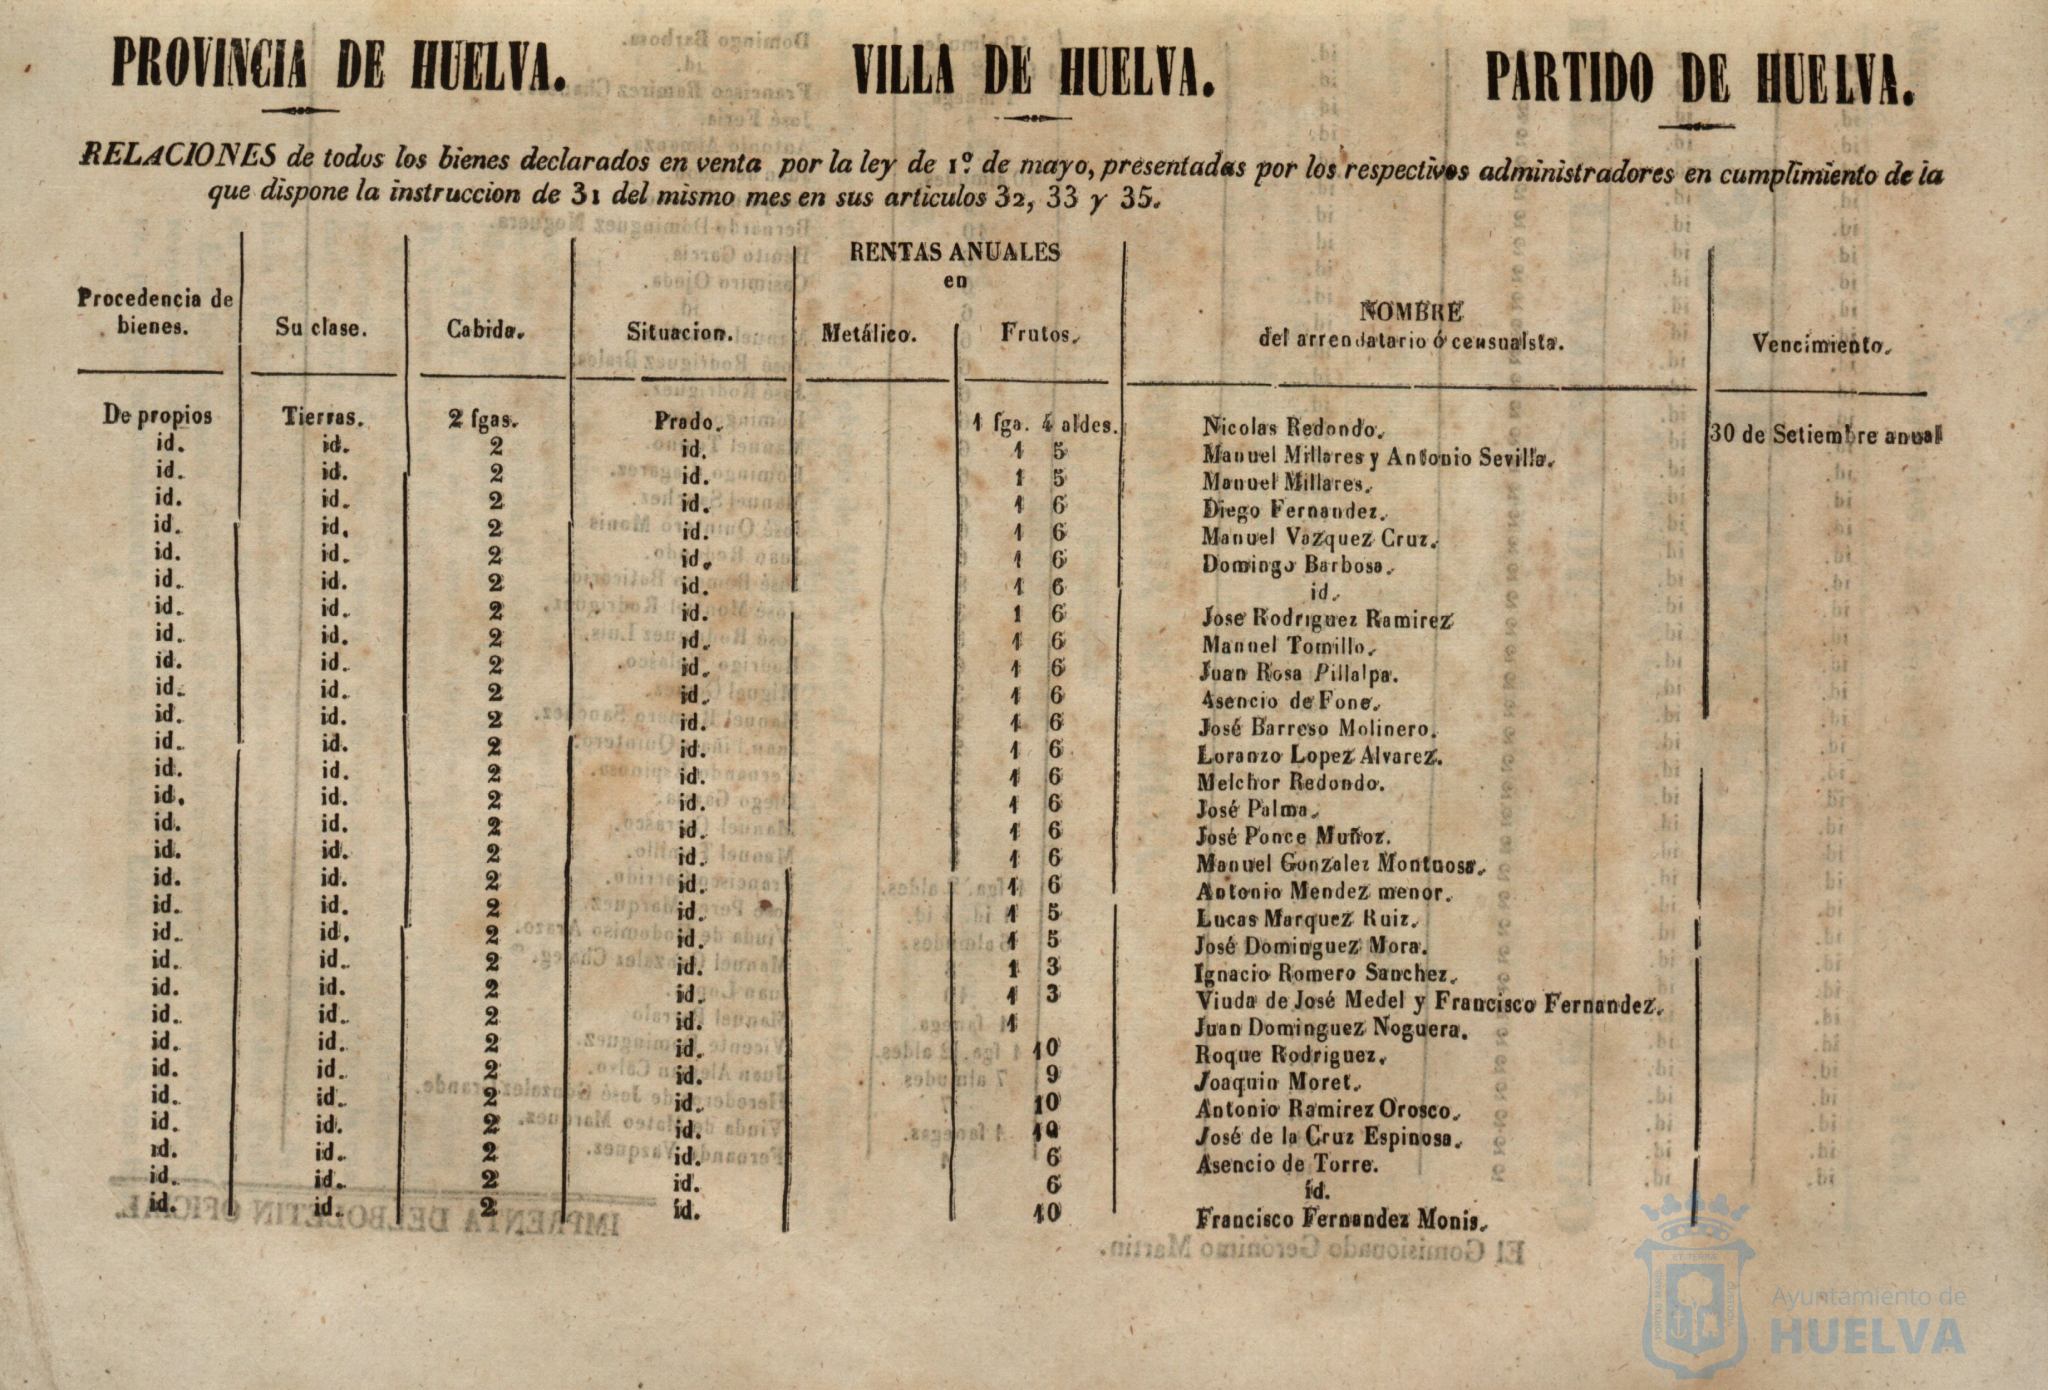 PROVINCIA DE HUELVA. VILLA DE HUELVA. PARTIDO DE HUELVA.
RELACIONES de todos los bienes declarados en venta por la ley de 1º. de mayo, presentadas por los respectivos administradores en cumplimiento de la
que dispone la instruccion de 31 del mismo mes en sus articulos 32, 33 y 35.
Procedencia de bienes. Su clase. Cabida. Situacion. RENTAS ANUALES en Metálico. Frutos. NOMBRE del arrendatario ó censualsta. Vencimiento.
De propios Tierras. 2 fgas. Prado. 1 fga. 4 aldes. Nicolas Redondo. 30 de Setiembre anual
id. id. 2 id. 1 5 Manuel Millares y Antonio Sevilla.
id. id. 2 id. 1 5 Manuel Millares.
id. id. 2 id. 1 6 Diego Fernandez.
id. id. 2 id. 1 6 Manuel Vazquez Cruz.
id. id. 2 id. 1 6 Domingo Barbosa.
id. id. 2 id. 1 6 id.
id. id. 2 id. 1 6 Jose Rodriguez Ramirez
id. id. 2 id. 1 6 Manuel Tomillo.
id. id. 2 id. 1 6 Juan Rosa Pillalpa.
id. id. 2 id. 1 6 Asencio de Fone.
id. id. 2 id. 1 6 José Barreso Molinero.
id. id. 2 id. 1 6 Loranzo Lopez Alvarez.
id. id. 2 id. 1 6 Melchor Redondo.
id. id. 2 id. 1 6 José Palma.
id. id. 2 id. 1 6 José Ponce Muñoz.
id. id. 2 id. 1 6 Manuel Gonzalez Montuosa.
id. id. 2 id. 1 6 Antonio Mendez menor.
id. id. 2 id. 1 5 Lucas Marquez Ruiz.
id. id. 2 id. 1 5 José Dominguez Mora.
id. id. 2 id. 1 3 Ignacio Romero Sanchez.
id. id. 2 id. 1 3 Viuda de José Medel y Francisco Fernandez.
id. id. 2 id. 1 Juan Dominguez Noguera.
id. id. 2 id. 10 Roque Rodriguez.
id. id. 2 id. 9 Joaquin Moret.
id. id. 2 id. 10 Antonio Ramirez Orosco.
id. id. 2 id. 10 José de la Cruz Espinosa.
id. id. 2 id. 6 Asencio de Torre.
id. id. 2 id. 6 id.
id. id. 2 id. 10 Francisco Fernandez Monis.
Ayuntamiento de
HUELVA